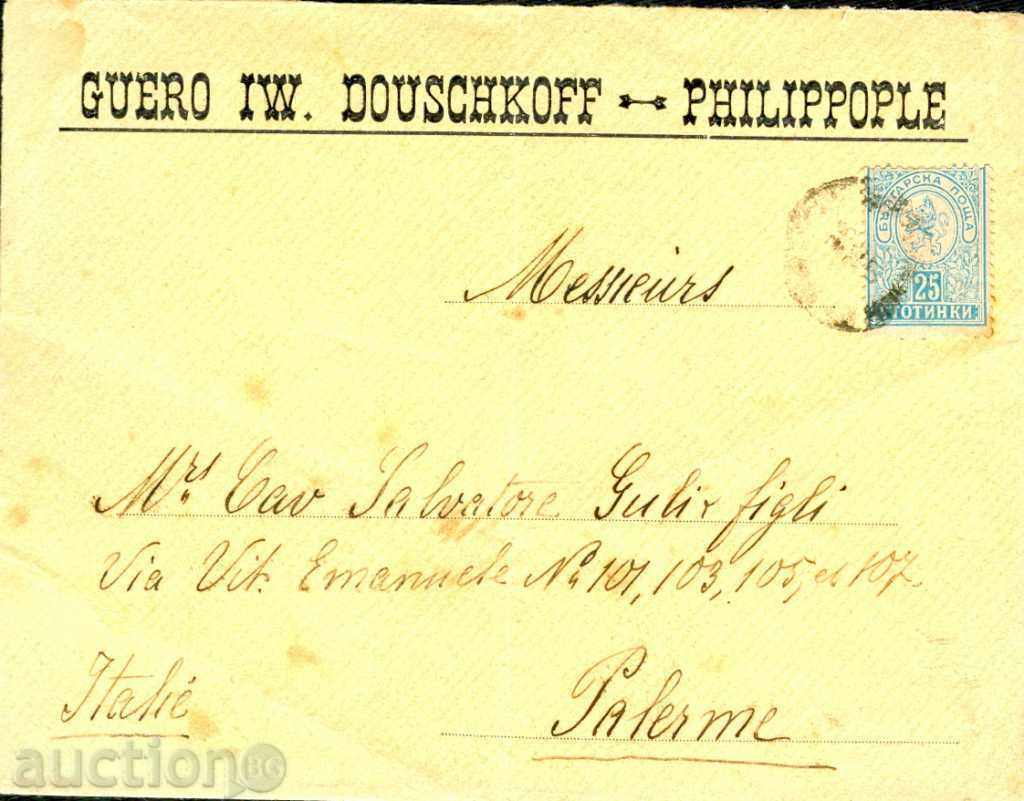 GUERO IW. DOUSCHKOFF PHILIPPOPLE
БЪЛГАРСКА ПОЩА
25
СТОТИНКИ
Messieurs
Mrs Cav Salvatore Guli & figli
Via Vit. Emanuele No 101, 103, 105, et 107
Italie
Palerme
auction BG